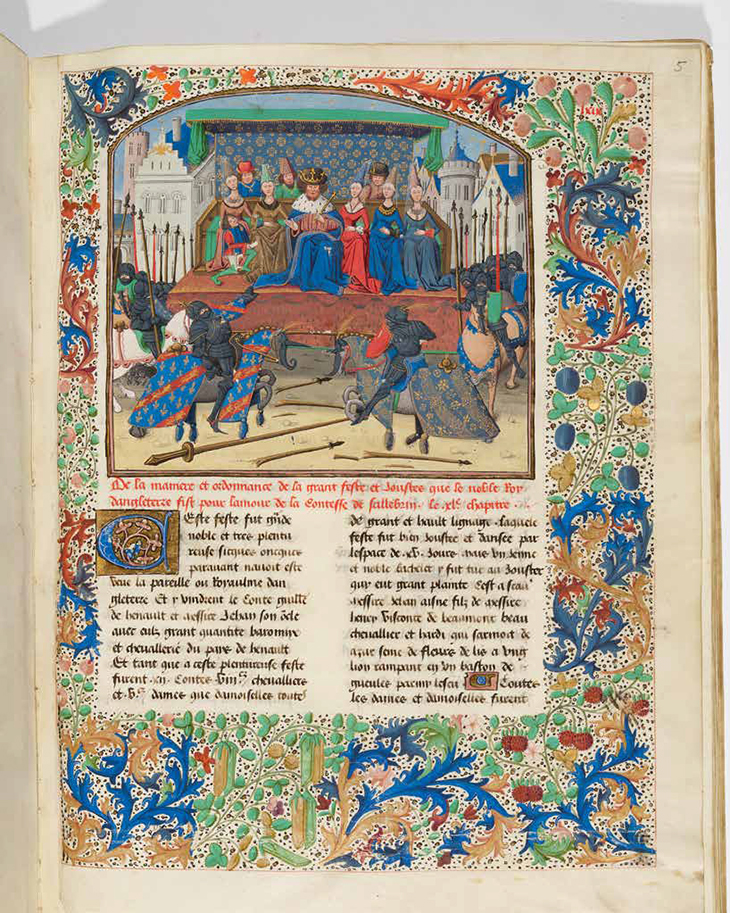 5
De la maniere et ordonnance de la grant feste et Jouste que le noble Roy
dangleterre fist pour lamour de la Contesse de sallebrin. le xl.e chapitre.
Ceste feste fut grãde
noble et tres plentu
reuse sicques oncques
parauant nauoit este
veue la pareille ou Royaulme dan
gleterre Et y vindrent le Conte guille
de henault et messire Jehan son oncle
auec eulx grant quantite baronnie
et cheuallerie du pays de henault
Et tant que a ceste plentureuse feste
furent .xii. Contes viii.c cheualliers
et v.c dames que damoiselles toutes
de grant et hault lignaige. laquele
feste fut bien Joustee et dansee par
lespace de .xv. Jours. mais vng Jenne
et noble bacheler y fut tue au Jouster
quy eut grant plainte Cest a scauoir
messire Jehan aisne filz de messire
henry visconte de beaumont beau
cheuallier et hardi qui sarmoit de
azur seme de fleurs de lis a vng
lion rampant et vng baston de
gueules parmy lescu Toutes
les dames et damoiselles furent